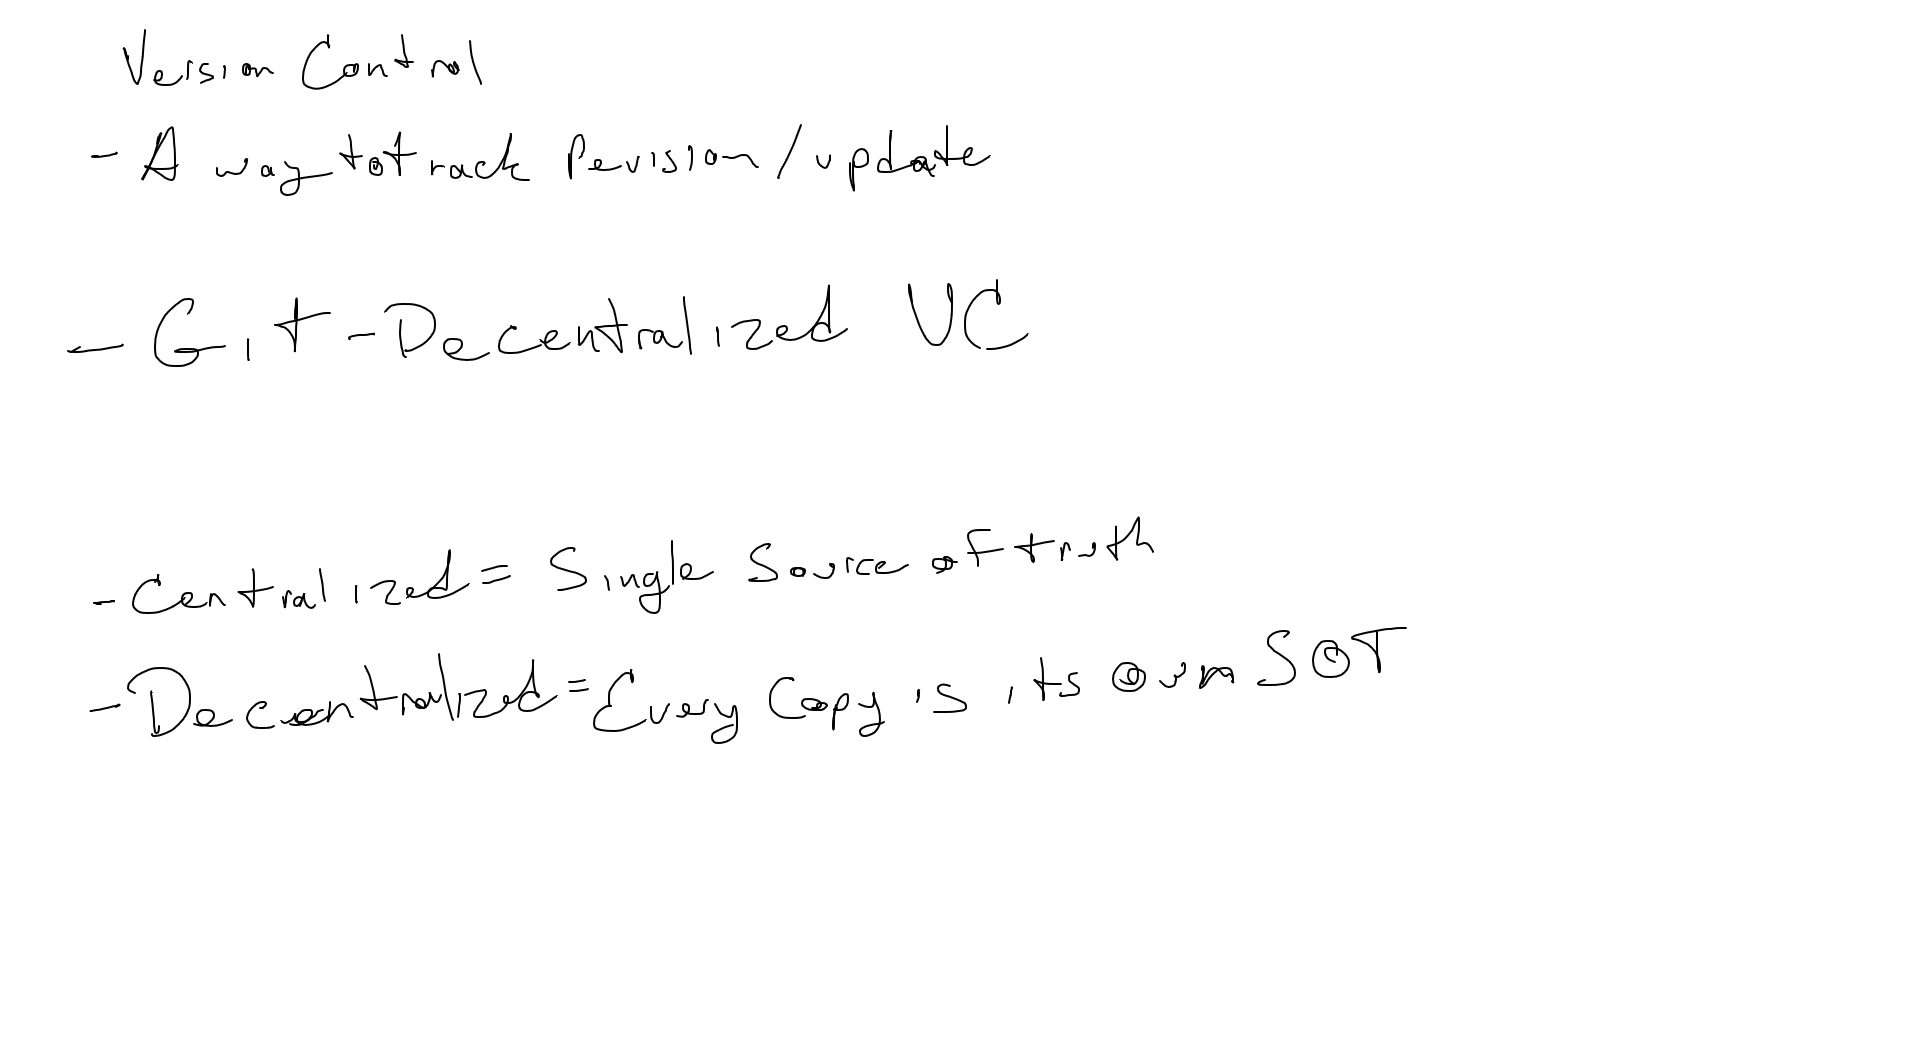 Version Control
- A way to track Revision/update
- Git - Decentralized VC
- Centralized = Single Source of truth
- Decentralized = Every Copy is its own SOT